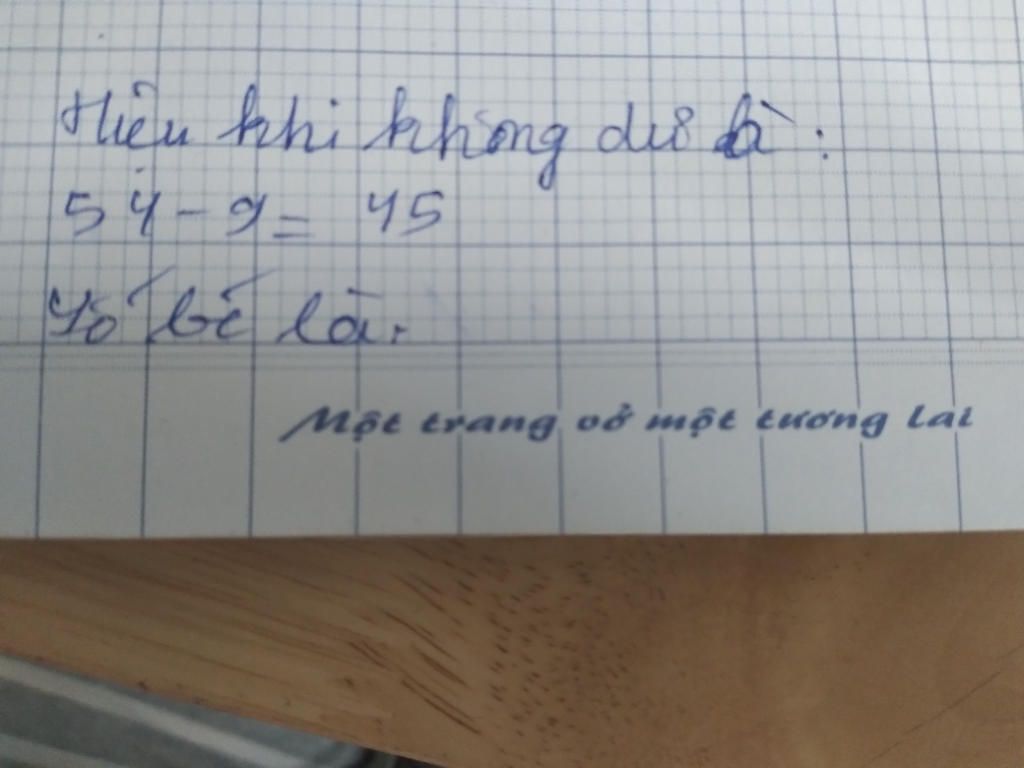 Hiệu khi không dư là:
54 - 9 = 45
Số bé là:
Một trang vở một tương lai